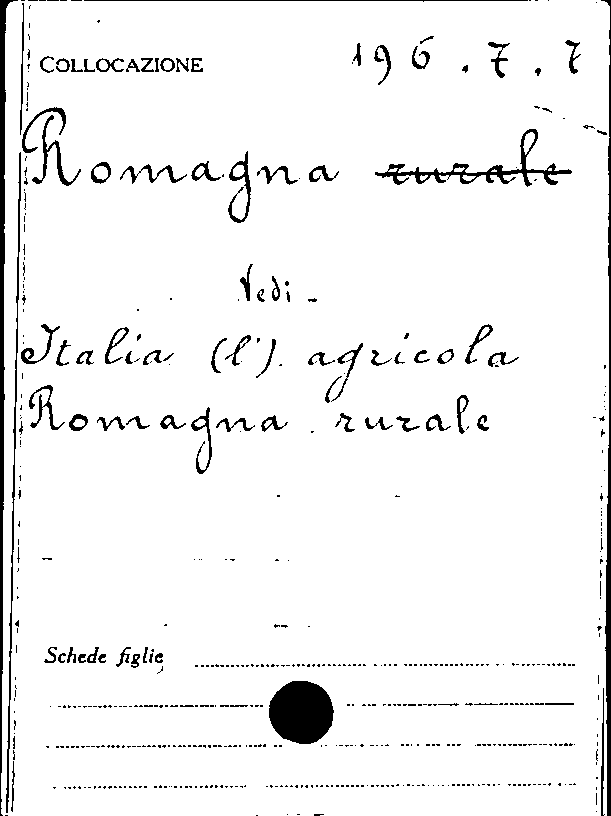 COLLOCAZIONE 196.7.7
Romagna rurale
Vedi -
Italia (l') agricola
Romagna rurale
Schede figlie